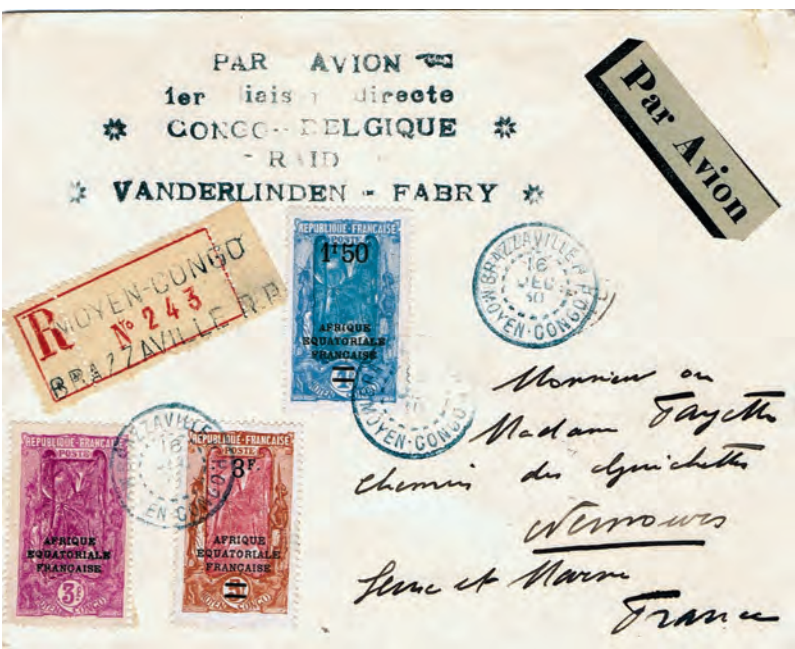 PAR AVION
1er liais directe
* CONGO-BELGIQUE *
- RAID
* VANDERLINDEN - FABRY *
Par Avion
MOYEN-CONGO
R N° 243
BRAZZAVILLE R.P.
REPUBLIQUE-FRANCAISE
POSTE
1F50
AFRIQUE
EQUATORIALE
FRANÇAISE
MOYEN CONGO
BRAZZAVILLE R.P.
16
DEC
30
MOYEN-CONGO
MOYEN-CONGO
REPUBLIQUE-FRANCAISE
POSTE
AFRIQUE
EQUATORIALE
FRANÇAISE
3F
CONGO
BRAZZAVILLE
16
EN CONGO
REPUBLIQUE-FRANCAISE
POSTE
3F.
AFRIQUE
EQUATORIALE
FRANÇAISE
CONGO
Monsieur ou
Madame Fayette
chemin des Guichettes
Nemours
Seine et Marne
France